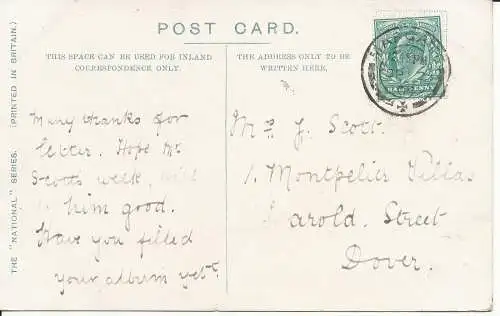 POST CARD.
THIS SPACE CAN BE USED FOR INLAND
CORRESPONDENCE ONLY.
THE ADDRESS ONLY TO BE
WRITTEN HERE.
HALFPENNY
THE "NATIONAL" SERIES. (PRINTED IN BRITAIN.)
Many thanks for
letter. Hope Mr
Scotts week, will
him good.
Have you filled
your album yet
J. Scott.
1. Montpelier Villas
Harold. Street
Dover.